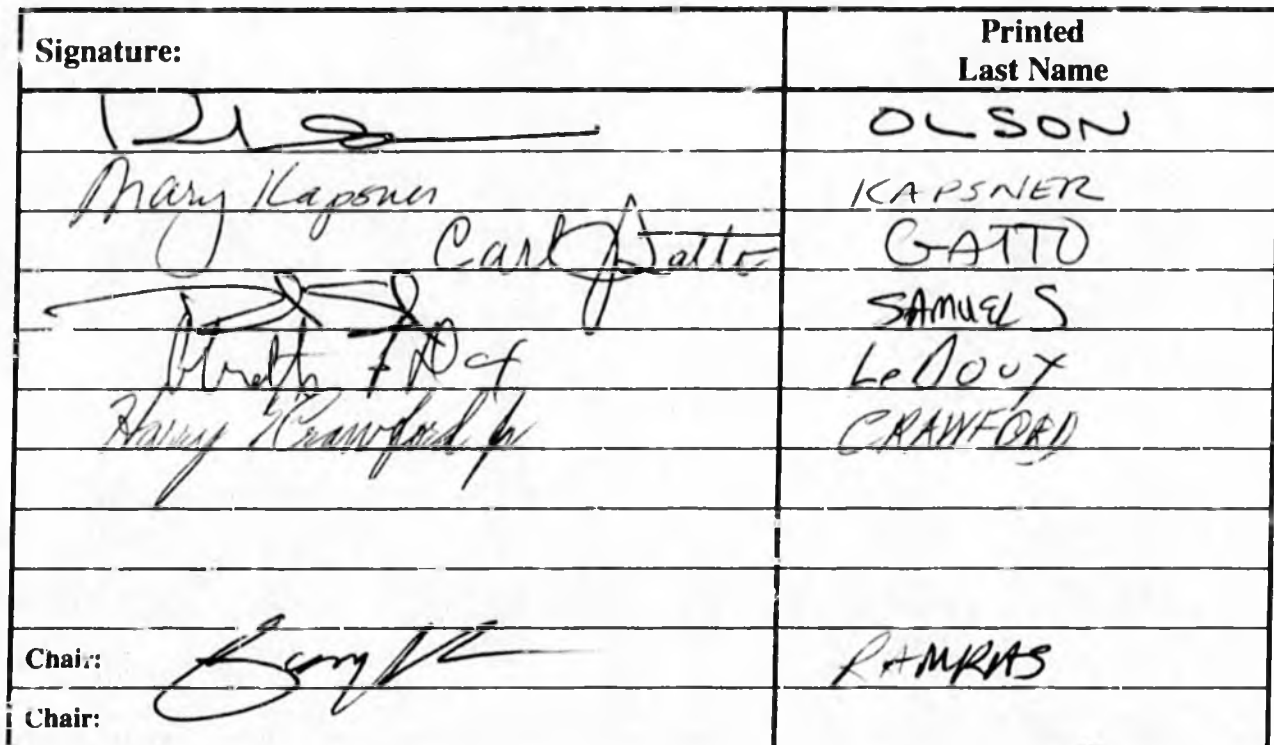 Signature: Printed Last Name
OLSON
Mary Kapsner KAPSNER
Carl J Gatto GATTO
SAMUELS
LeDoux
Harry Crawford Jr CRAWFORD
Chair: RAMRAS
Chair: